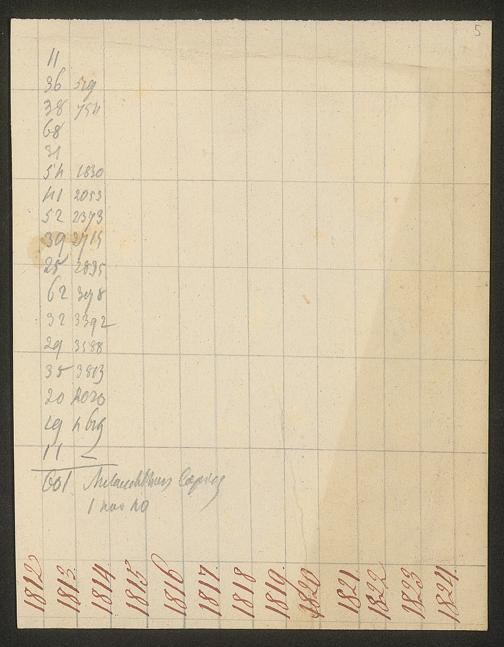 5
11
36 519
38 754
68
31
54 1830
41 2053
52 2373
39 2715
25 2835
62
32 3392
29 3588
35 3813
20 4020
19 4619
11
601
1 nov 40
1812
1813
1814
1815
1816
1817
1818
1819
1820
1821
1822
1823
1824